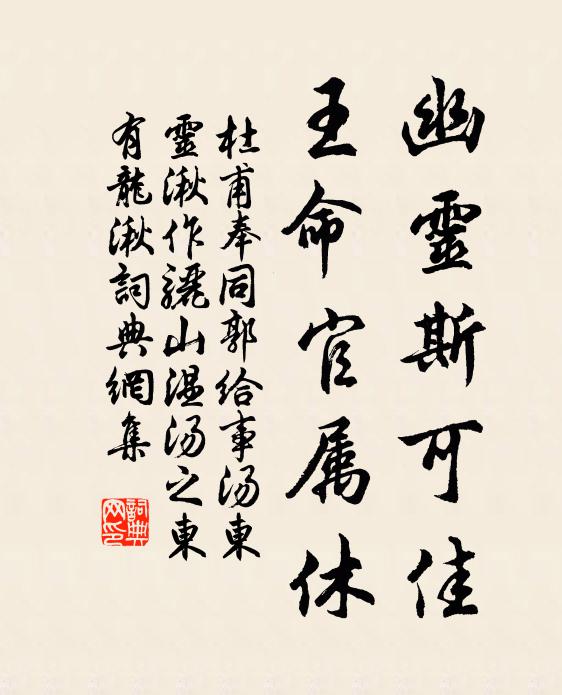 幽靈斯可佳
王命官属休
杜甫奉同郭给事汤東
靈湫作驪山温汤之東
有龍湫詞典網集
詞典
网印